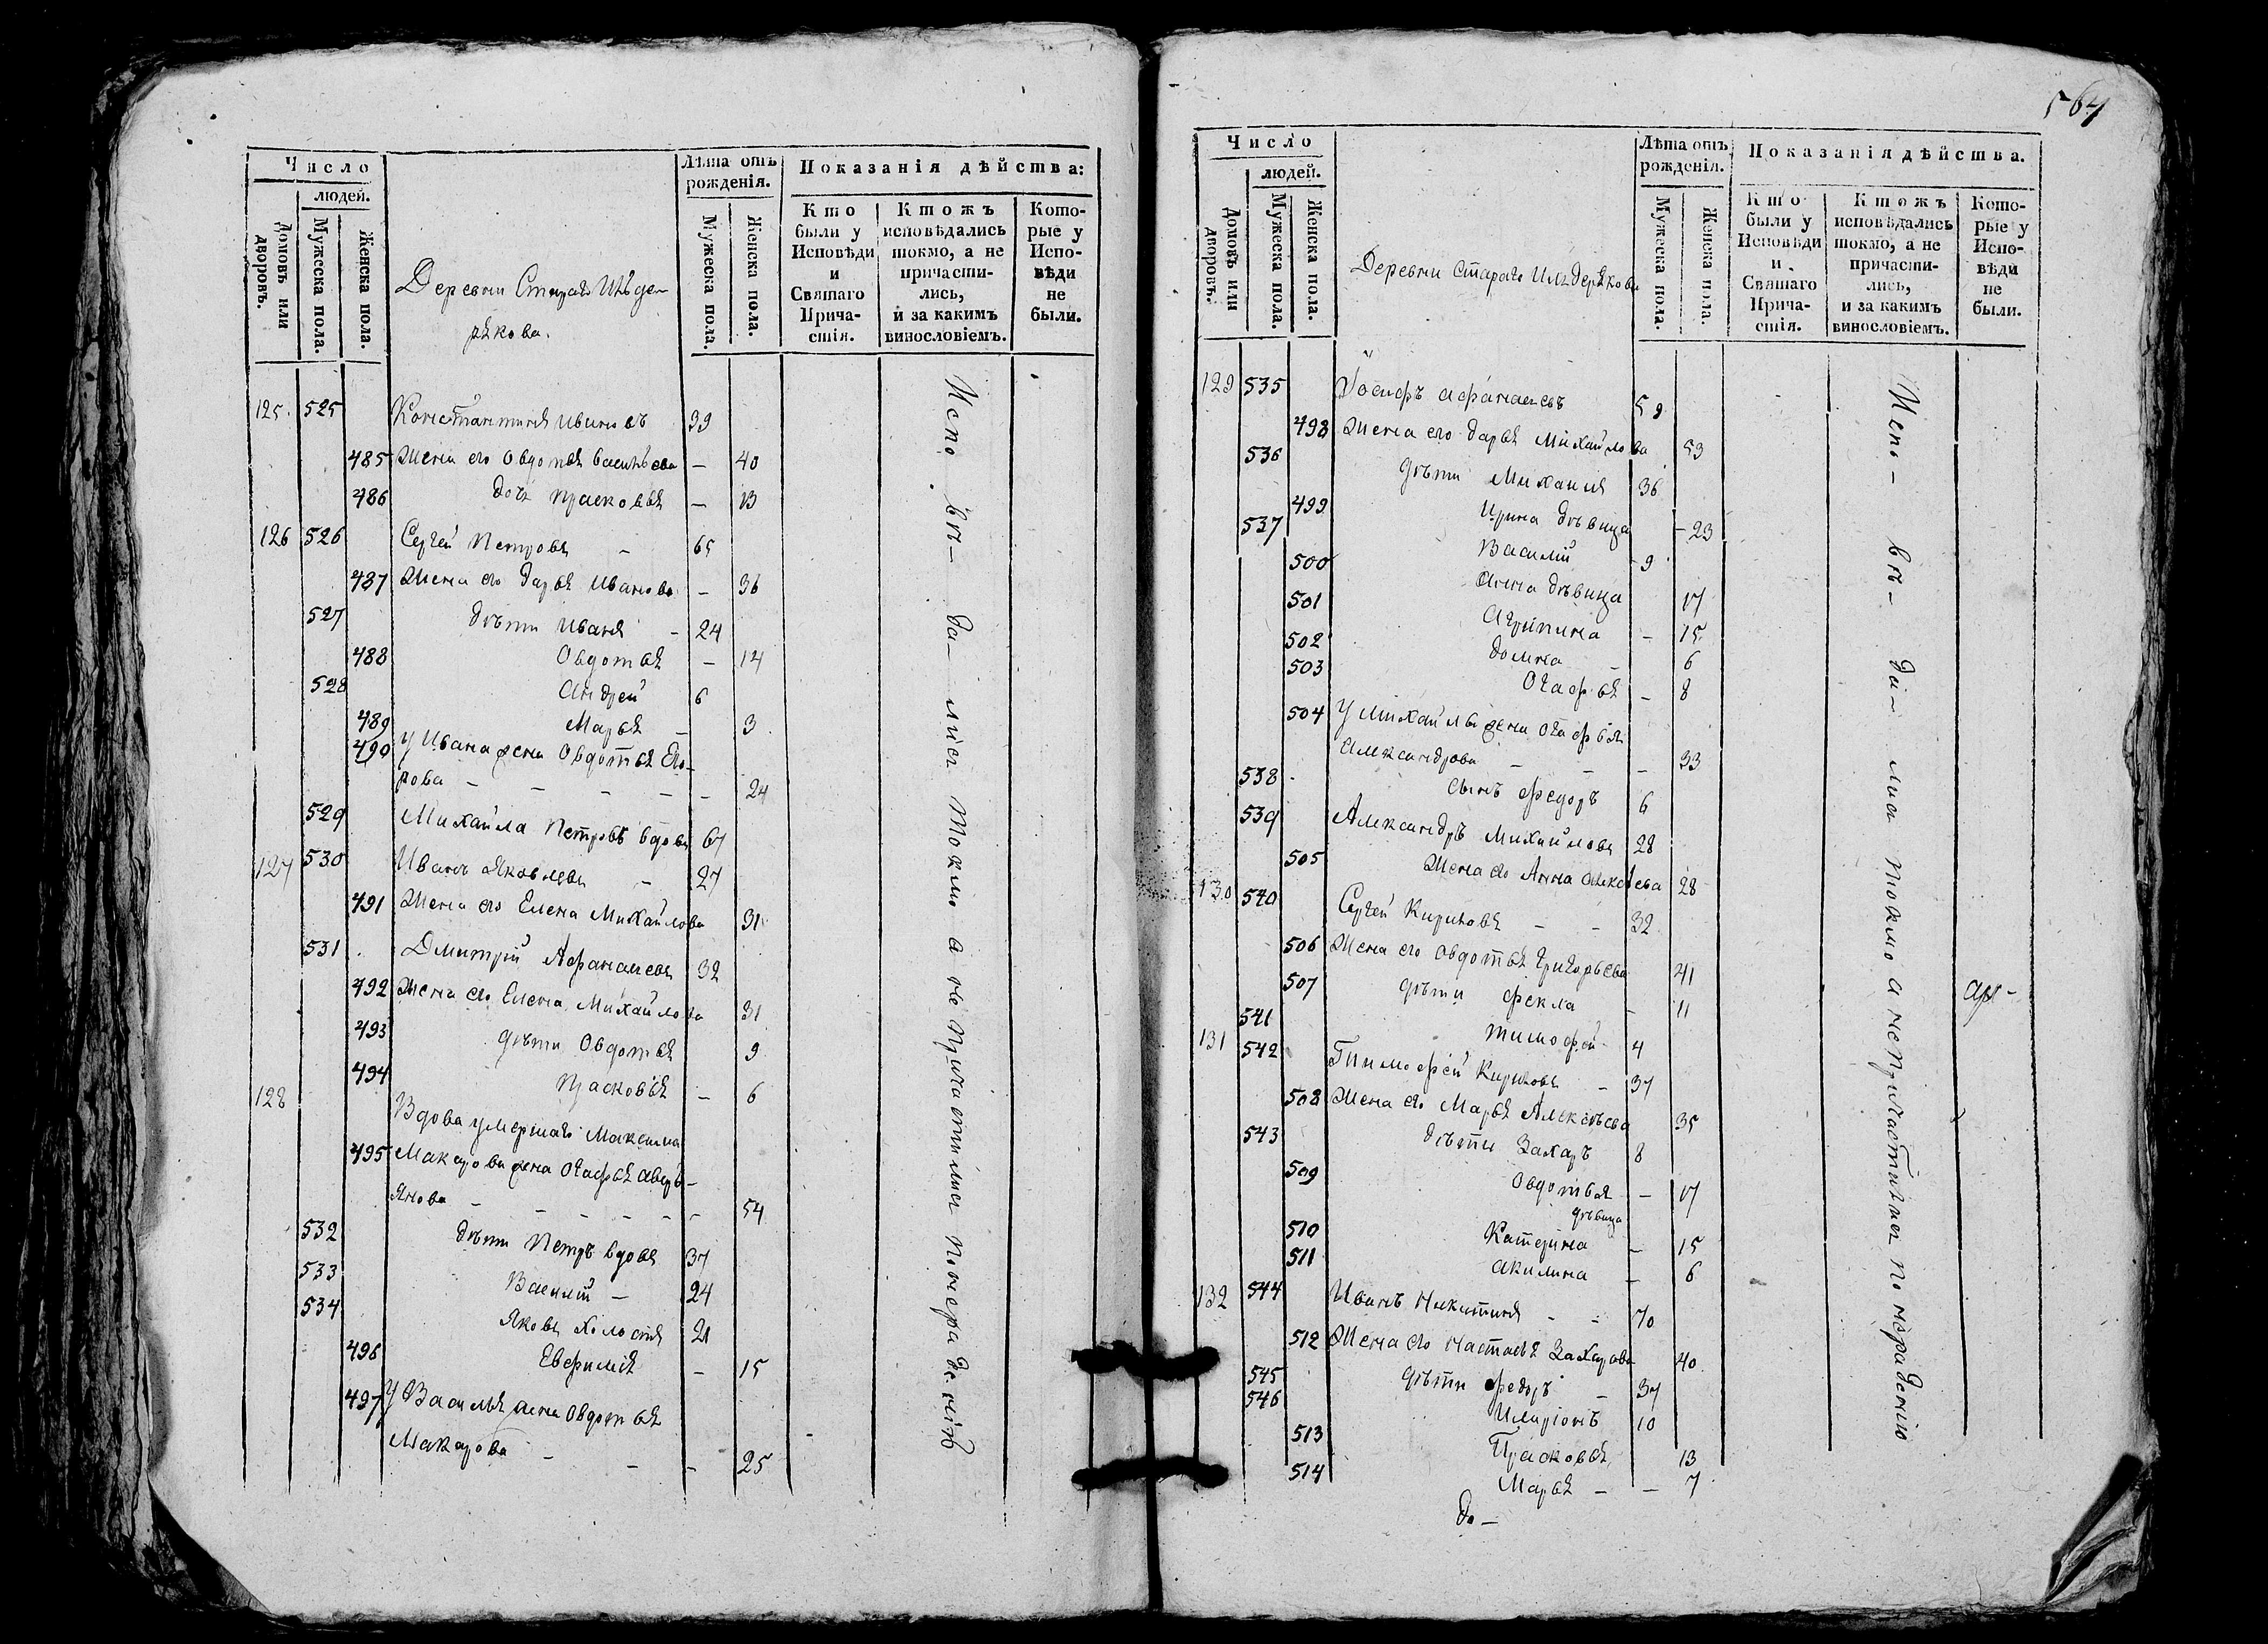 Число
людей.
Домовъ или дворовъ.
Мужеска пола.
Женска пола.
Деревни Стараго
рѣкова.
Лѣта отъ рожденія.
Мужеска пола.
Женска пола.
Показанія дѣйства:
Кто были у Исповѣди и Святаго Причастія.
Ктожъ исповѣдались токмо, а не причастились, и за какимъ винословіемъ.
Которые у Исповѣди не были.
125. 525 Константинъ Ивановъ 39
485 Жена его Овдотья Васильева — 40
486 дочь Прасковья — 13
126 526 Сергей Петровъ — 65
487 Жена его Дарья Иванова — 36
527 дѣти Иванъ — 24
488 Овдотья — 14
528 Андрей 6
489 Марья — 3
490 У Ивана жена Овдотья Его-
рова — — — — — 24
529 Михайла Петровъ вдовъ 67
127 530 Иванъ Яковлевъ — 27
491 Жена его Елена Михайлова 31
531 Дмитрій Афанасьевъ 32
492 Жена его Елена Михайлова 31
493 дѣти Овдотья 9
494 Прасковья — 6
128 Вдова умершаго Максима
495 Макарова жена Огафья Аверь-
янова — — — — — — 54
532 дѣти Петръ вдовъ 37
533 Василій — 24
534 Яковъ холостъ 21
496 Евфимія — 15
497 У Василья жена Овдотья
Макарова — — — 25
Испо- вѣ- да- лись токмо а не причастились по нераденію
564
Число
людей.
Домовъ или дворовъ.
Мужеска пола.
Женска пола.
Деревни Стараго
Лѣта отъ рожденія.
Мужеска пола.
Женска пола.
Показанія дѣйства.
Кто были у Исповѣди и Святаго Причастія.
Ктожъ исповѣдались токмо, а не причастились, и за какимъ винословіемъ.
Которые у Исповѣди не были.
129 535 Іосифъ Афанасьевъ 59
498 Жена его Дарья Михайлова 53
536 дѣти Михаилъ 36
499 Ирина дѣвица — 23
537 Василій — 9
500 Анна дѣвица 17
501 Агрипина — 15
502 Домна — 6
503 Огафья — 8
504 У Михайлы жена Огафья
Александрова — — — 33
538 сынъ Федоръ 6
539 Александръ Михайловъ 28
505 Жена его Анна 28
130 540 Сергей Кириловъ — — 32
506 Жена его Овдотья Григорьева 41
507 дѣти Фекла — 11
541 Тимофей 4
131 542 Тимофей Кириловъ — 37
508 Жена его Марья Алексѣева 35
543 дѣти Захаръ 8
509 Овдотья — 17
дѣвица
510 Катерина — 15
511 Акилина — 6
132 544 Иванъ Никитинъ — — 70
512 Жена его Настасья Захарова 40
545 дѣти Федоръ — 37
546 Иларіонъ 10
513 Прасковья 13
514 Марья — — 7
Испо- вѣ- да- лись токмо а не причастились по нераденію
до —